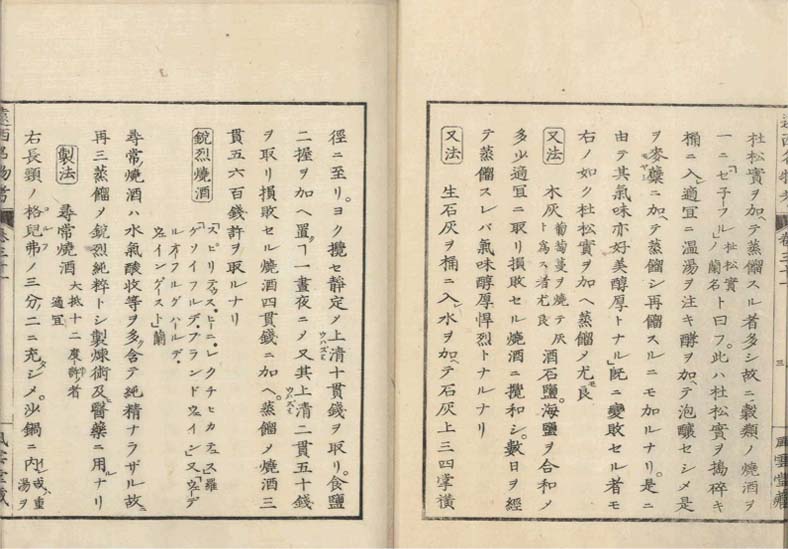 杜松實ヲ加ヘテ蒸餾スル者多シ故ニ穀類ノ燒酒ヲ
一ニ「セ子フル」杜松實ノ蘭名ト曰フ。此ハ杜松實ヲ搗碎キ
桶ニ入レ適宜ニ温湯ヲ注キ酵ヲ加ヘテ泡釀セシメ是
ヲ麥糵ニ加ヘテ蒸餾シ再餾スルニモ加ルナリ。是ニ
由テ其氣味亦好美醇厚トナル」既ニ變敗セル者モ
右ノ如ク杜松實ヲ加ヘ蒸餾メ尤良
又法 木灰葡萄蔓ヲ燒テ灰ト爲ス者尤良 酒石鹽。海鹽ヲ合和メ
多少適宜ニ取リ損敗セル燒酒ニ攪和シ。數日ヲ經
テ蒸餾スレバ氣味醇厚悍烈トナルナリ
又法 生石灰ヲ桶ニ入レ水ヲ加ヘテ石灰上三四掌橫
徑ニ至リ。ヨク攪セ靜定メ上清十貫錢ヲ取リ。食鹽
二握ヲ加ヘ置ヿ一晝夜ニメ又其上清二貫五十錢
ヲ取リ損敗セル燒酒四貫錢ニ加ヘ。蒸餾メ燒酒三
貫五六百錢許ヲ取ルナリ
銳烈燒酒
尋常ノ燒酒ハ水氣酸收等ヲ多ク含テ純精ナラザル故ニ
再三蒸餾メ銳烈純粹トシ製煉術及ヒ醫藥ニ用ルナリ
製法 尋常燒酒大抵十二度許ノ者適宜
右長頸ノ格兒弗ノ三分ノ二ニ充シメ。沙鍋ニ内レ或ハ重湯ヲ
遠西名物考 卷三十一
風雲堂藏